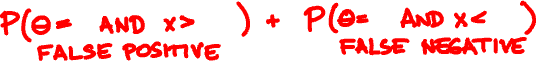 P(θ= AND x> ) + P(θ= AND x< )
FALSE POSITIVE FALSE NEGATIVE